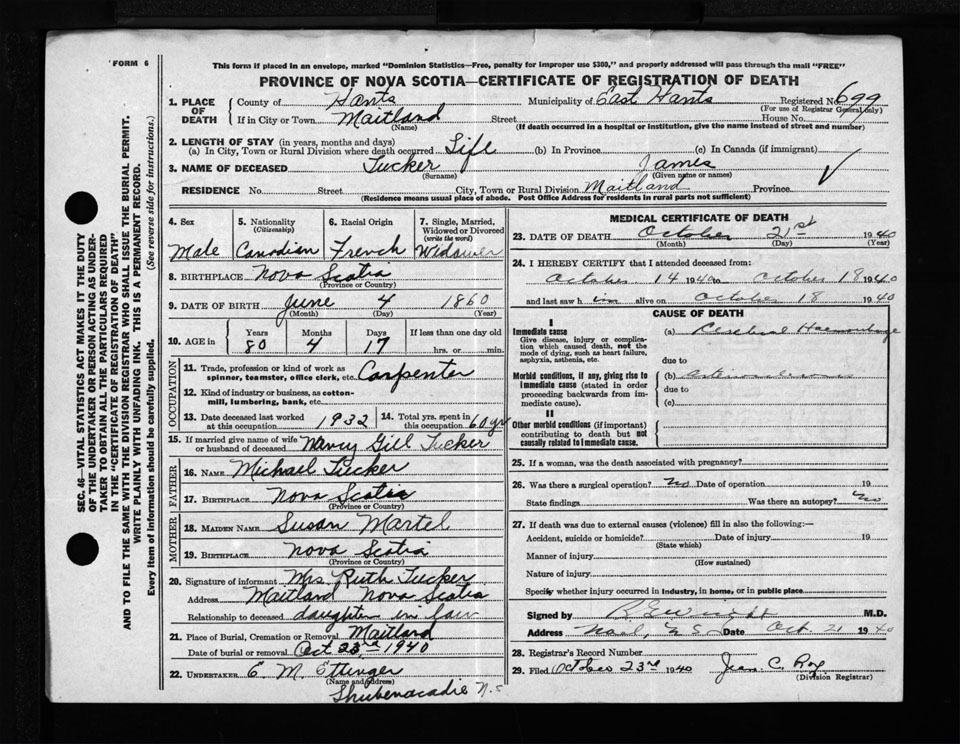 FORM 6
This form if placed in an envelope, marked "Dominion Statistics—Free, penalty for improper use $300," and properly addressed will pass through the mail "FREE"
PROVINCE OF NOVA SCOTIA—CERTIFICATE OF REGISTRATION OF DEATH
1. PLACE OF DEATH County of Hants Municipality of East Hants Registered No. 699
(For use of Registrar General only)
If in City or Town Maitland Street House No.
(Name) (If death occurred in a hospital or institution, give the name instead of street and number)
2. LENGTH OF STAY (in years, months and days)
(a) In City, Town or Rural Division where death occurred Life (b) In Province (c) In Canada (if immigrant)
3. NAME OF DECEASED Tucker James
(Surname) (Given name or names)
RESIDENCE No. Street City, Town or Rural Division Maitland Province
(Residence means usual place of abode. Post Office Address for residents in rural parts not sufficient)
4. Sex 5. Nationality (Citizenship) 6. Racial Origin 7. Single, Married, Widowed or Divorced (write the word)
Male Canadian French Widower
8. BIRTHPLACE Nova Scotia
(Province or Country)
9. DATE OF BIRTH June 4 1860
(Month) (Day) (Year)
10. AGE in Years Months Days If less than one day old
80 4 17 hrs. or min.
OCCUPATION
11. Trade, profession or kind of work as spinner, teamster, office clerk, etc. Carpenter
12. Kind of industry or business, as cotton-mill, lumbering, bank, etc.
13. Date deceased last worked at this occupation 1932 14. Total yrs. spent in this occupation 60 yr
15. If married give name of wife or husband of deceased Nancy Gill Tucker
FATHER
16. NAME Michael Tucker
17. BIRTHPLACE Nova Scotia
(Province or Country)
MOTHER
18. MAIDEN NAME Susan Martel
19. BIRTHPLACE Nova Scotia
(Province or Country)
20. Signature of informant Mrs. Ruth Tucker
Address Maitland Nova Scotia
Relationship to deceased daughter in law
21. Place of Burial, Cremation or Removal Maitland
Date of burial or removal Oct 23rd 1940
22. UNDERTAKER E. M. Ettinger
(Name and address)
Shubenacadie N.S
MEDICAL CERTIFICATE OF DEATH
23. DATE OF DEATH October 21st 1940
(Month) (Day) (Year)
24. I HEREBY CERTIFY that I attended deceased from:
October 14 1940 to October 18 1940
and last saw him alive on October 18 1940
CAUSE OF DEATH
I
Immediate cause (a) Cerebral Haemorrhage
Give disease, injury or complication which caused death, not the mode of dying, such as heart failure, asphyxia, asthenia, etc.
due to
Morbid conditions, if any, giving rise to immediate cause (stated in order proceeding backwards from immediate cause). (b)
due to
(c)
II
Other morbid conditions (if important) contributing to death but not causally related to immediate cause.
25. If a woman, was the death associated with pregnancy?
26. Was there a surgical operation? No Date of operation 19
State findings Was there an autopsy? No
27. If death was due to external causes (violence) fill in also the following:—
Accident, suicide or homicide? Date of injury 19
(State which)
Manner of injury
(How sustained)
Nature of injury
Specify whether injury occurred in industry, in home, or in public place
Signed by M.D.
Address Noel, N S Date Oct 21 1940
28. Registrar's Record Number
29. Filed October 23rd 1940 Jean C. Roy
(Division Registrar)
SEC. 46—VITAL STATISTICS ACT MAKES IT THE DUTY
OF THE UNDERTAKER OR PERSON ACTING AS UNDER-
TAKER TO OBTAIN ALL THE PARTICULARS REQUIRED
IN THE "CERTIFICATE OF REGISTRATION OF DEATH"
AND TO FILE THE SAME WITH THE DIVISION REGISTRAR WHO SHALL ISSUE THE BURIAL PERMIT.
WRITE PLAINLY WITH UNFADING INK. THIS IS A PERMANENT RECORD.
Every item of information should be carefully supplied. (See reverse side for instructions.)